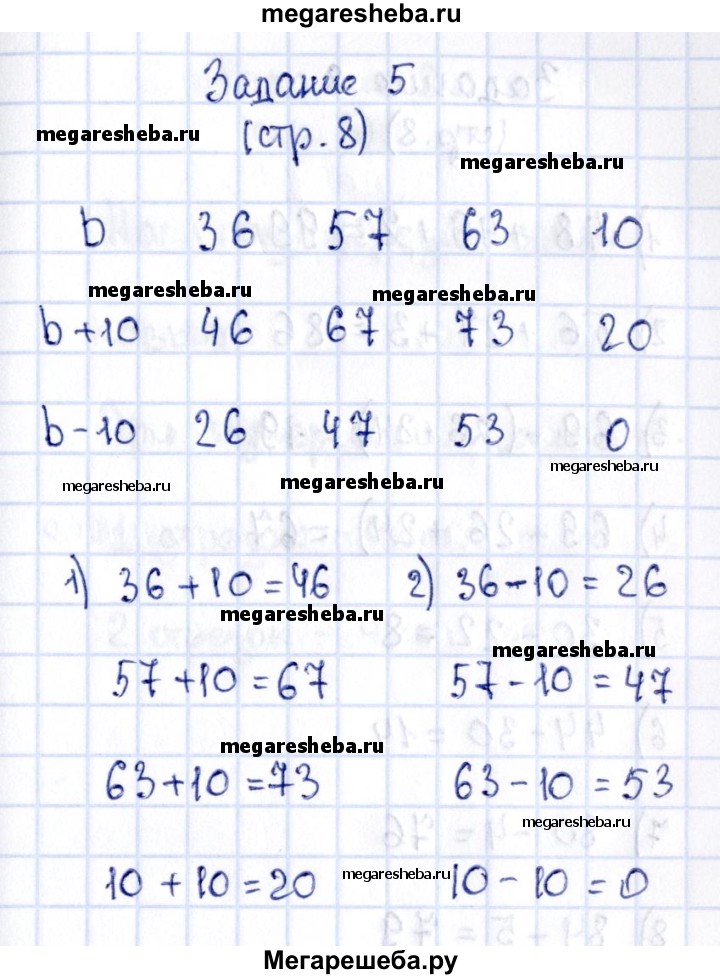 megaresheba.ru
Задание 5
megaresheba.ru
(стр. 8)
megaresheba.ru
b 36 57 63 10
megaresheba.ru megaresheba.ru
b+10 46 67 73 20
b-10 26 47 53 0
megaresheba.ru megaresheba.ru megaresheba.ru
1) 36+10=46 2) 36-10=26
megaresheba.ru
megaresheba.ru
57+10=67 57-10=47
megaresheba.ru
63+10=73 63-10=53
megaresheba.ru
10+10=20 megaresheba.ru 10-10=0
Мегарешеба.ру